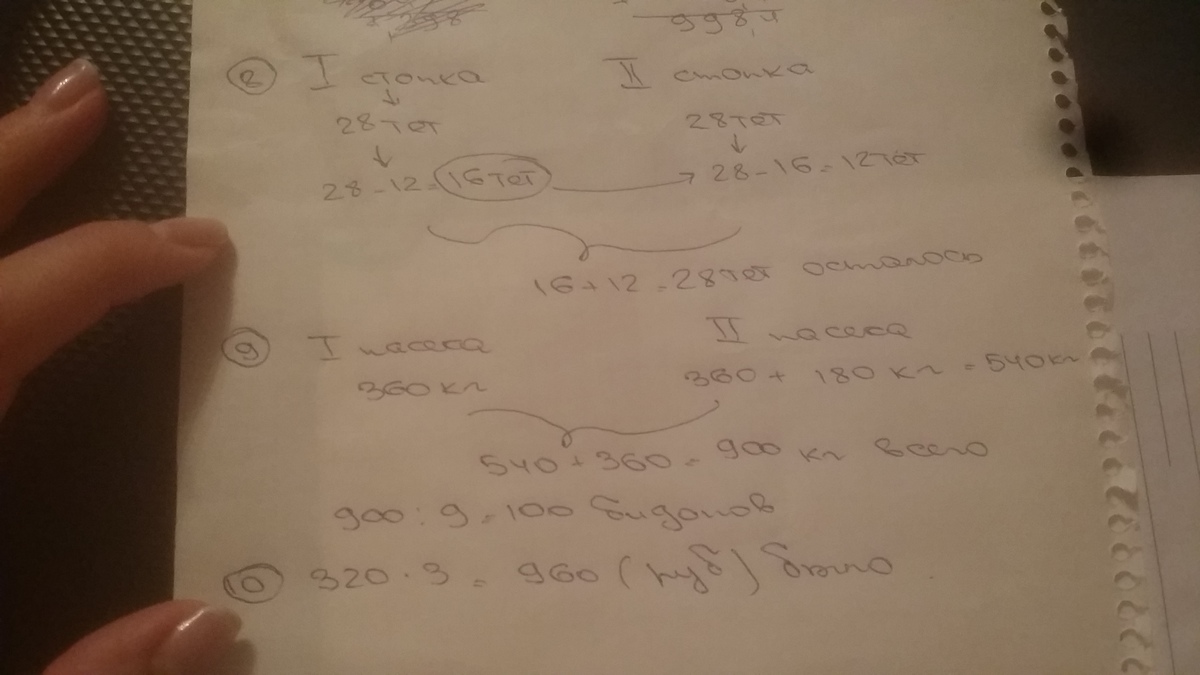 998,4
⑧ I стопка II стопка
28 тет 28 тет
28 - 12 = 16 тет → 28 - 16 = 12 тет
16 + 12 = 28 тет осталось
⑨ I пасека II пасека
360 кг 360 + 180 кг = 540 кг
540 + 360 = 900 кг всего
900 : 9 = 100 бидонов
⑩ 320 · 3 = 960 (руб) было